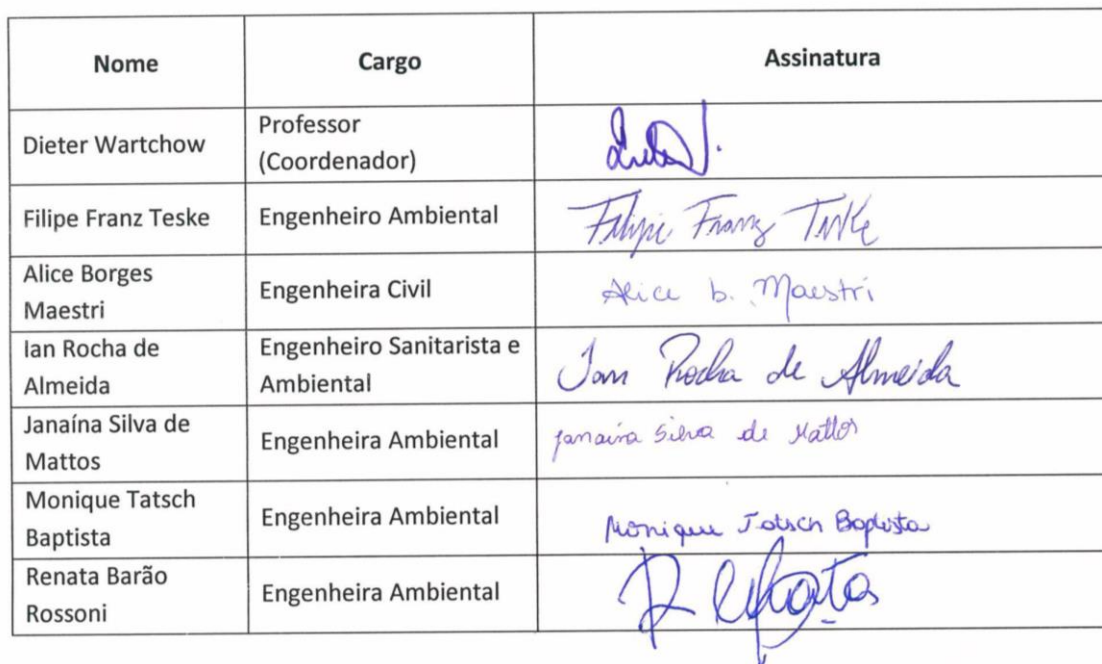 Nome Cargo Assinatura
Dieter Wartchow Professor
(Coordenador)
Filipe Franz Teske Engenheiro Ambiental Filipe Franz Teske
Alice Borges
Maestri Engenheira Civil Alice b. Maestri
Ian Rocha de
Almeida Engenheiro Sanitarista e
Ambiental Ian Rocha de Almeida
Janaína Silva de
Mattos Engenheira Ambiental Janaina Silva de Mattos
Monique Tatsch
Baptista Engenheira Ambiental Monique Tatsch Baptista
Renata Barão
Rossoni Engenheira Ambiental Renata